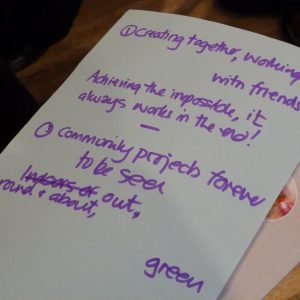 ① Creating together, working
with friends
Achieving the impossible, it
always works in the end!
—
③ Community projects forever
to be seen
out,
round + about,
green